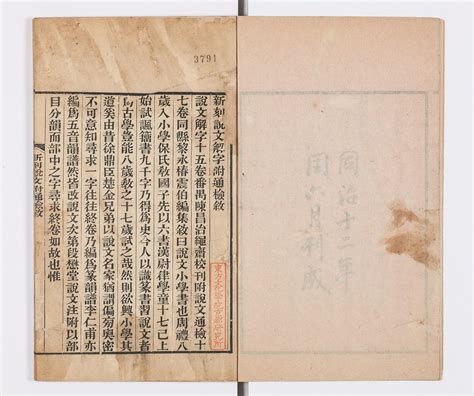 3791
新刻說文解字附通檢敘
說文解字十五卷番禺陳昌治繩齋校刊附說文通檢十
七卷同縣黎永椿震伯編集敘曰說文小學書也周禮八
歲入小學保氏敎國子先以六書漢尉律學童十七已上
始試諷籀書九千字乃得爲史今人以識篆書習說文者
爲古學豈能八歲敎之十七歲試之哉然則欲興小學其
道奚由昔徐鼎臣楚金兄弟以說文名家猶謂偏旁奧密
不可意知尋求一字往往終卷乃編爲篆韻譜李仁甫亦
編爲五音韻譜然皆改說文次第段懋堂說文注附以部
目分韻而部中之字尋求終卷如故也惟
東方文化學院京都研究所
同治十二年
閏六月刊成